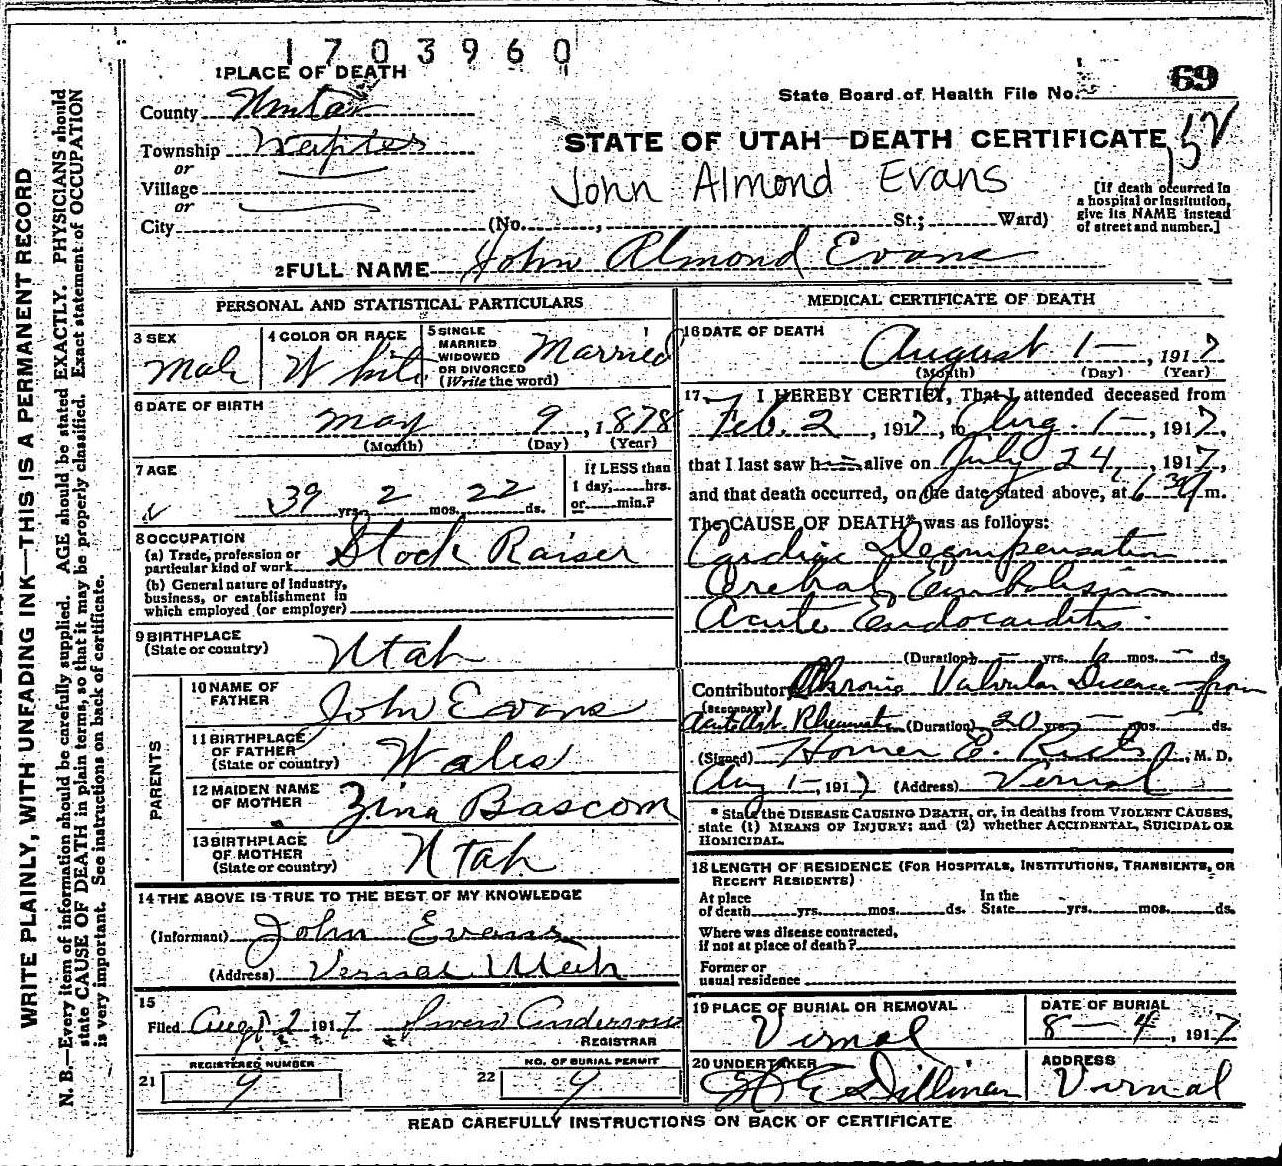 1703960
1 PLACE OF DEATH
69
State Board of Health File No.
County Uinta
STATE OF UTAH—DEATH CERTIFICATE
152
Township Naples
or
Village
or
City (No. , St.; Ward)
John Almond Evans
[If death occurred in
a hospital or institution,
give its NAME instead
of street and number.]
2 FULL NAME John Almond Evans
PERSONAL AND STATISTICAL PARTICULARS
3 SEX
Male
4 COLOR OR RACE
White
5 SINGLE
MARRIED
WIDOWED
OR DIVORCED
(Write the word)
Married
6 DATE OF BIRTH
May 9, 1878
(Month) (Day) (Year)
7 AGE
39 yrs. 2 mos. 22 ds.
If LESS than
1 day, hrs.
or min.?
8 OCCUPATION
(a) Trade, profession or
particular kind of work Stock Raiser
(b) General nature of industry,
business, or establishment in
which employed (or employer)
9 BIRTHPLACE
(State or country) Utah
PARENTS
10 NAME OF
FATHER John Evans
11 BIRTHPLACE
OF FATHER
(State or country) Wales
12 MAIDEN NAME
OF MOTHER Zina Bascom
13 BIRTHPLACE
OF MOTHER
(State or country) Utah
14 THE ABOVE IS TRUE TO THE BEST OF MY KNOWLEDGE
(Informant) John Evans
(Address) Vernal Utah
15
Filed Aug 2 1917 Anderson
REGISTRAR
REGISTERED NUMBER
21 9
NO. OF BURIAL PERMIT
22 9
MEDICAL CERTIFICATE OF DEATH
16 DATE OF DEATH
August 1—, 1917
(Month) (Day) (Year)
17. I HEREBY CERTIFY, That I attended deceased from
Feb. 2, 1917, to Aug. 1—, 1917,
that I last saw h alive on July 24, 1917,
and that death occurred, on the date stated above, at 6 30 m.
The CAUSE OF DEATH* was as follows:
Cardiac Decompensation
Embolism
Acute Endocarditis.
(Duration) — yrs. 6 mos. — ds.
Contributory Chronic Valvular Disease from
(SECONDARY)
Acute Art. Rheumatism (Duration) 20 yrs. — mos. — ds.
(Signed) Homer E. , M. D.
Aug 1—, 1917 (Address) Vernal
* State the DISEASE CAUSING DEATH, or, in deaths from VIOLENT CAUSES,
state (1) MEANS OF INJURY; and (2) whether ACCIDENTAL, SUICIDAL OR
HOMICIDAL.
18 LENGTH OF RESIDENCE (FOR HOSPITALS, INSTITUTIONS, TRANSIENTS, OR
RECENT RESIDENTS)
At place In the
of death yrs. mos. ds. State yrs. mos. ds.
Where was disease contracted,
if not at place of death?
Former or
usual residence
19 PLACE OF BURIAL OR REMOVAL
Vernal
DATE OF BURIAL
8—4, 1917
20 UNDERTAKER
Dillman
ADDRESS
Vernal
READ CAREFULLY INSTRUCTIONS ON BACK OF CERTIFICATE
WRITE PLAINLY, WITH UNFADING INK—THIS IS A PERMANENT RECORD
N. B.—Every item of information should be carefully supplied. AGE should be stated EXACTLY. PHYSICIANS should
state CAUSE OF DEATH in plain terms, so that it may be properly classified. Exact statement of OCCUPATION
is very important. See instructions on back of certificate.